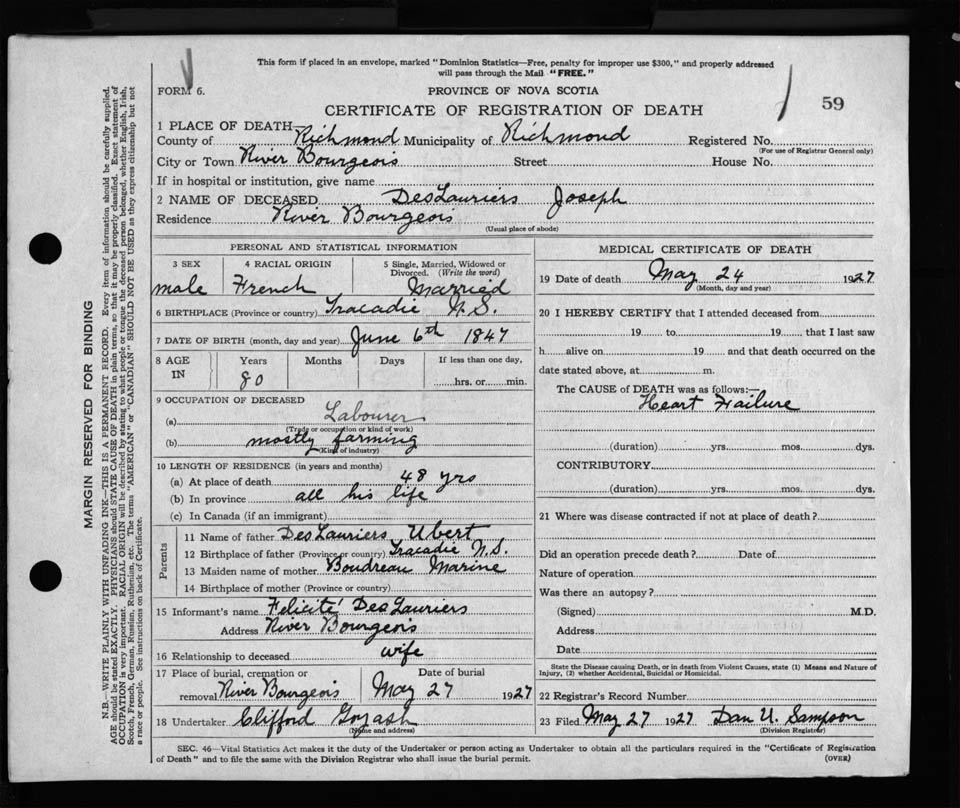 This form if placed in an envelope, marked "Dominion Statistics—Free, penalty for improper use $300," and properly addressed
will pass through the Mail "FREE."
FORM 6.
PROVINCE OF NOVA SCOTIA
59
CERTIFICATE OF REGISTRATION OF DEATH
1 PLACE OF DEATH—
County of Richmond Municipality of Richmond Registered No.
(For use of Registrar General only)
City or Town River Bourgeois Street House No.
If in hospital or institution, give name
2 NAME OF DECEASED DesLauriers Joseph
Residence River Bourgeois
(Usual place of abode)
PERSONAL AND STATISTICAL INFORMATION
3 SEX
male
4 RACIAL ORIGIN
French
5 Single, Married, Widowed or
Divorced. (Write the word)
Married
6 BIRTHPLACE (Province or country) Tracadie N.S.
7 DATE OF BIRTH (month, day and year) June 6th 1847
8 AGE
IN
Years
80
Months
Days
If less than one day,
hrs. or min.
9 OCCUPATION OF DECEASED
(a) Labourer
(Trade or occupation or kind of work)
(b) mostly farming
(Kind of industry)
10 LENGTH OF RESIDENCE (in years and months)
(a) At place of death 48 yrs
(b) In province all his life
(c) In Canada (if an immigrant)
Parents
11 Name of father DesLauriers Ubert
12 Birthplace of father (Province or country) Tracadie N.S.
13 Maiden name of mother Boudreau Marine
14 Birthplace of mother (Province or country)
15 Informant's name Felicité DesLauriers
Address River Bourgeois
16 Relationship to deceased wife
17 Place of burial, cremation or
removal River Bourgeois
Date of burial
May 27 1927
18 Undertaker Clifford
(Name and address)
MEDICAL CERTIFICATE OF DEATH
19 Date of death May 24 1927
(Month, day and year)
20 I HEREBY CERTIFY that I attended deceased from
19 to 19 that I last saw
h alive on 19 and that death occurred on the
date stated above, at m.
The CAUSE of DEATH was as follows:—
Heart Failure
(duration) yrs. mos. dys.
CONTRIBUTORY
(duration) yrs. mos. dys.
21 Where was disease contracted if not at place of death?
Did an operation precede death? Date of
Nature of operation
Was there an autopsy?
(Signed) M.D.
Address
Date
State the Disease causing Death, or in death from Violent Causes, state (1) Means and Nature of
Injury, (2) whether Accidental, Suicidal or Homicidal.
22 Registrar's Record Number
23 Filed May 27 1927 Dan U. Sampson
(Division Registrar)
SEC. 46—Vital Statistics Act makes it the duty of the Undertaker or person acting as Undertaker to obtain all the particulars required in the "Certificate of Registration
of Death" and to file the same with the Division Registrar who shall issue the burial permit.
(OVER)
MARGIN RESERVED FOR BINDING
N.B.—WRITE PLAINLY WITH UNFADING INK—THIS IS A PERMANENT RECORD. Every item of information should be carefully supplied.
AGE should be stated EXACTLY. PHYSICIANS should STATE CAUSE OF DEATH in plain terms, so that it may be properly classified. Exact statement of
OCCUPATION is very important. RACIAL ORIGIN will be described by stating to what people or tongue the deceased person belonged, whether English, Irish,
Scotch, French, German, Russian, Ruthenian, etc. The terms "AMERICAN" or "CANADIAN" SHOULD NOT BE USED as they express citizenship but not
a race or people. See instructions on back of Certificate.